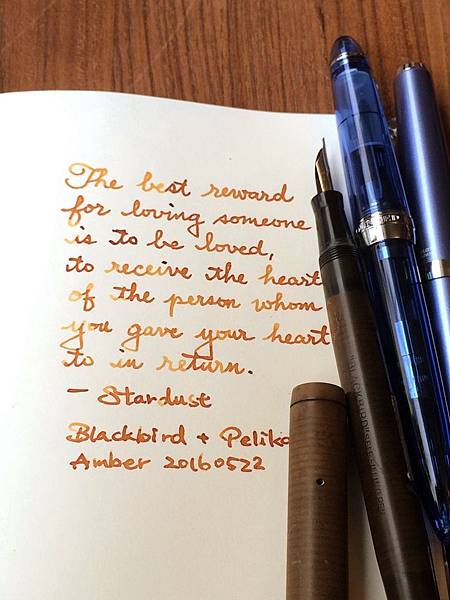 The best reward
for loving someone
is to be loved,
to receive the heart
of the person whom
you gave your heart
to in return.
- Stardust
Blackbird + Pelika
Amber 20160522
"BLACKBIRD"